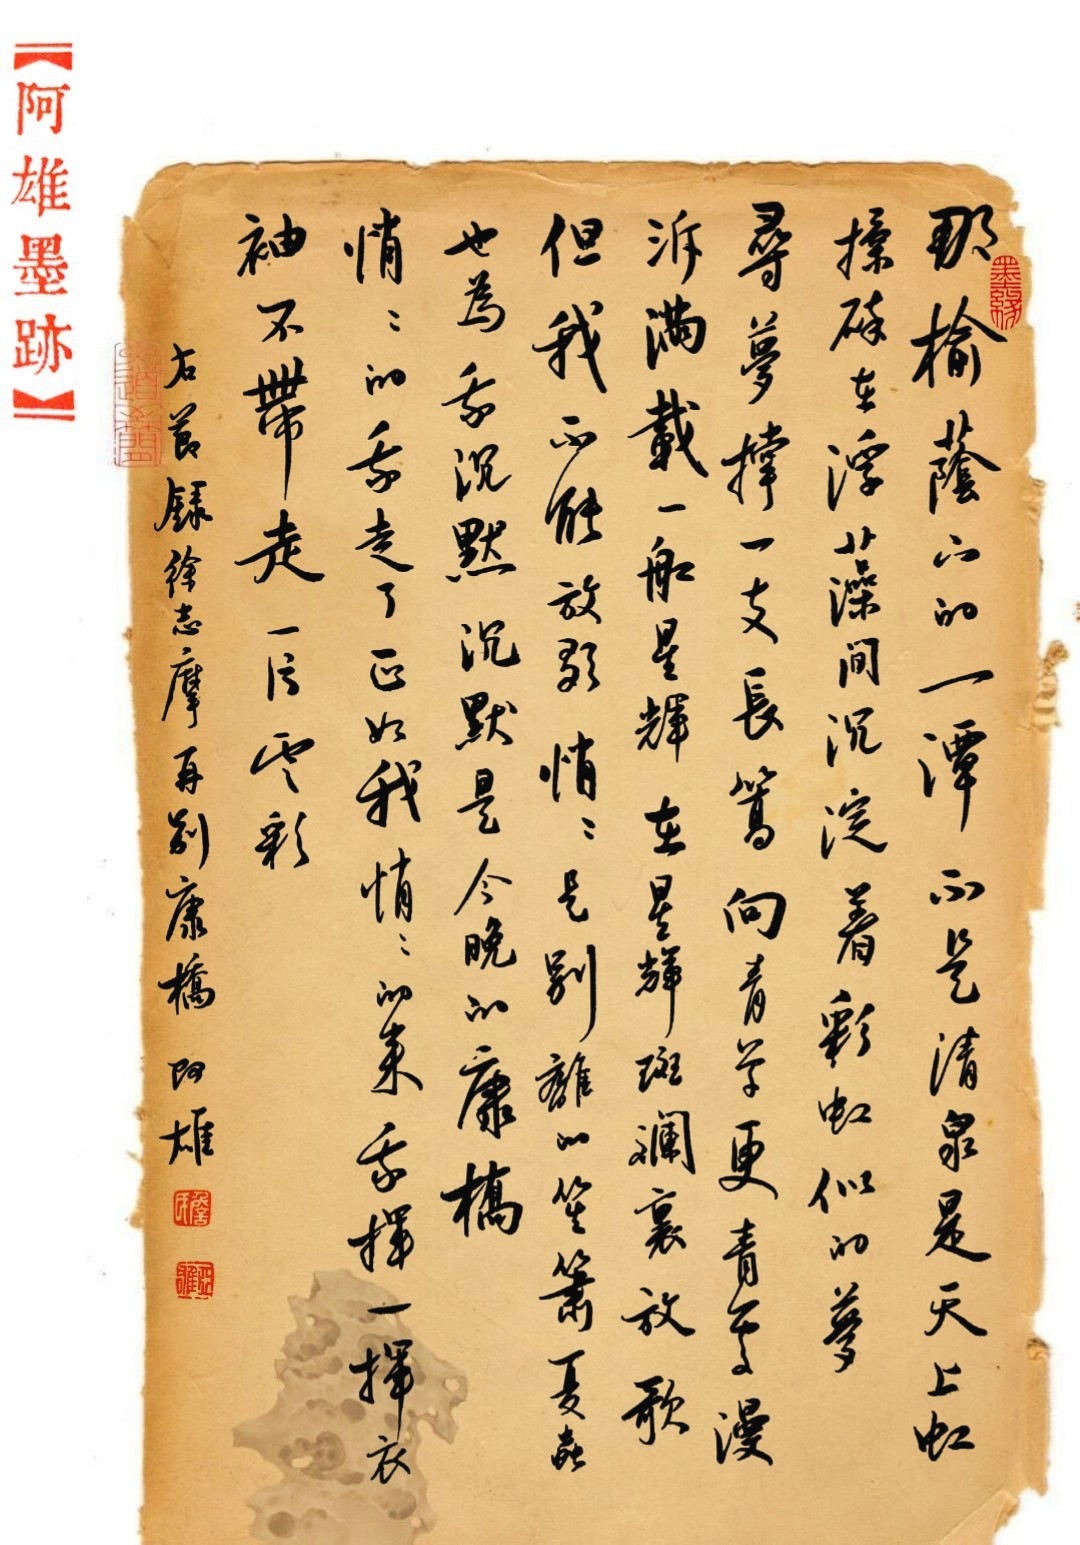 【阿雄墨跡】
墨緣
那榆蔭下的一潭不是清泉是天上虹
揉碎在浮藻間沉淀着彩虹似的夢
尋夢撐一支長篙向青草更青處漫
泝滿載一船星輝在星輝斑斕裏放歌
但我不能放歌悄〻是別離的笙簫夏蟲
也為我沉默沉默是今晚的康橋
悄〻的我走了正如我悄〻的來我揮一揮衣
袖不帶走一片雲彩
右節錄徐志摩再別康橋 阿雄